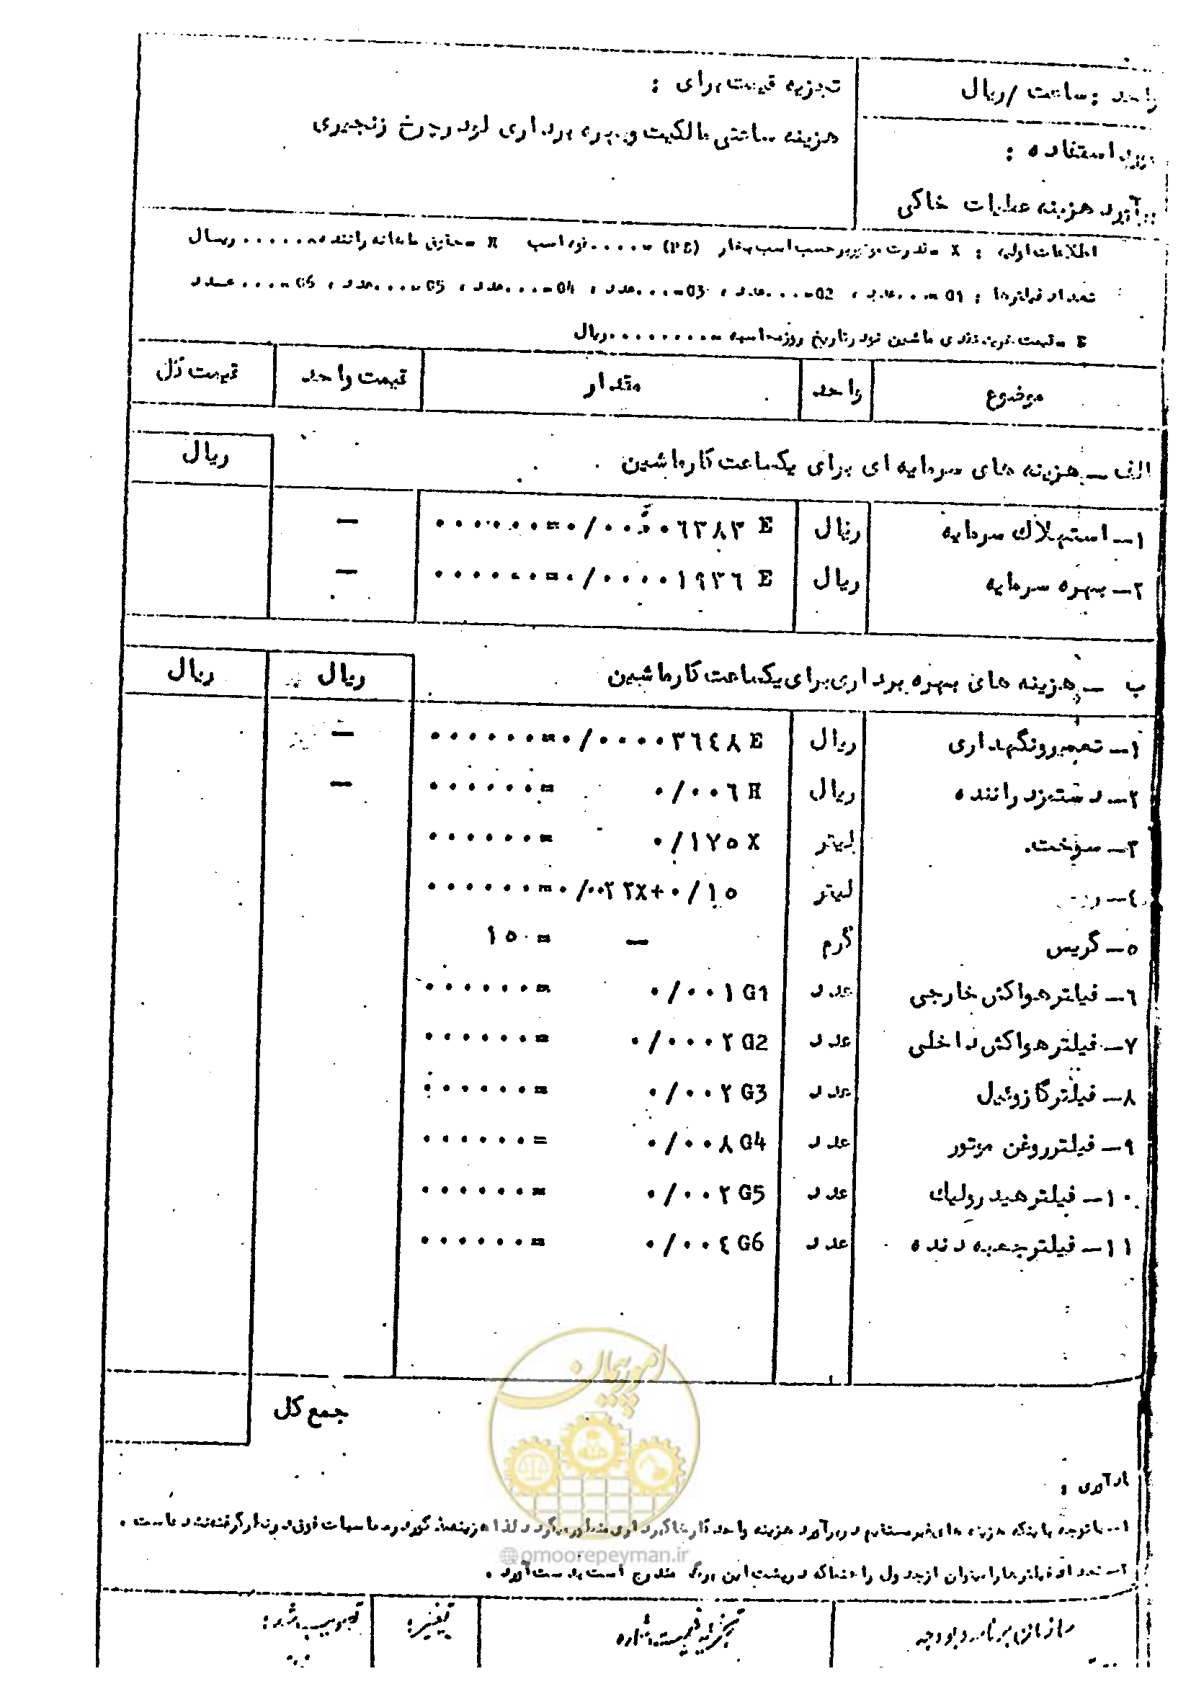 واحد : ساعت / ریال
مورد استفاده :
برآورد هزینه عملیات خاکی
تجزیه قیمت برای :
هزینه ساعتی مالکیت و بهره برداری لودر چرخ زنجیری
اطلاعات اولیه : X = قدرت موتور برحسب اسب بخار (PS) = ..... قوه اسب H = حقوق ماهانه راننده = ...... ریال
تعداد فیلترها : G1 = ... عدد ، G2 = ... عدد ، G3 = ... عدد ، G4 = ... عدد ، G5 = ... عدد ، G6 = ... عدد
E = قیمت خرید نقدی ماشین نو در تاریخ روز محاسبه = ......... ریال
موضوع واحد مقدار قیمت واحد قیمت کل
الف ـ هزینه های سرمایه ای برای یکساعت کار ماشین ریال
۱ـ استهلاک سرمایه ریال ۰/۰۰۰۰۶۳۸۳ E = ...... —
۲ـ بهره سرمایه ریال ۰/۰۰۰۰۱۹۳۶ E = ...... —
ب ـ هزینه های بهره برداری برای یکساعت کار ماشین ریال ریال
۱ـ تعمیر و نگهداری ریال ۰/۰۰۰۰۳۶۴۸ E = ...... —
۲ـ دستمزد راننده ریال ۰/۰۰۶ H = ...... —
۳ـ سوخت لیتر ۰/۱۷۵ X = ......
۴ـ لیتر ۰/۰۰۲۲X+۰/۱۵ = ......
۵ـ گریس گرم — = ۱۵۰
۶ـ فیلتر هواکش خارجی عدد ۰/۰۰۱ G1 = ......
۷ـ فیلتر هواکش داخلی عدد ۰/۰۰۰۲ G2 = ......
۸ـ فیلتر گازوئیل عدد ۰/۰۰۲ G3 = ......
۹ـ فیلتر روغن موتور عدد ۰/۰۰۸ G4 = ......
۱۰ـ فیلتر هیدرولیک عدد ۰/۰۰۲ G5 = ......
۱۱ـ فیلتر جعبه دنده عدد ۰/۰۰۴ G6 = ......
جمع کل
امور پیمان
یادآوری :
۱ـ با توجه باینکه هزینه های غیرمستقیم در برآورد هزینه واحد کارهای منظور میگردد لذا هزینه مذکور در محاسبات فوق در نظر گرفته نشده است .
@omoorepeyman.ir
۲ـ تعداد فیلترها را میتوان از جدول راهنما که در پشت این برگ مندرج است بدست آورد .
سازمان برنامه و بودجه
تجزیه قیمت شماره
تغییر :
تصویب شد :